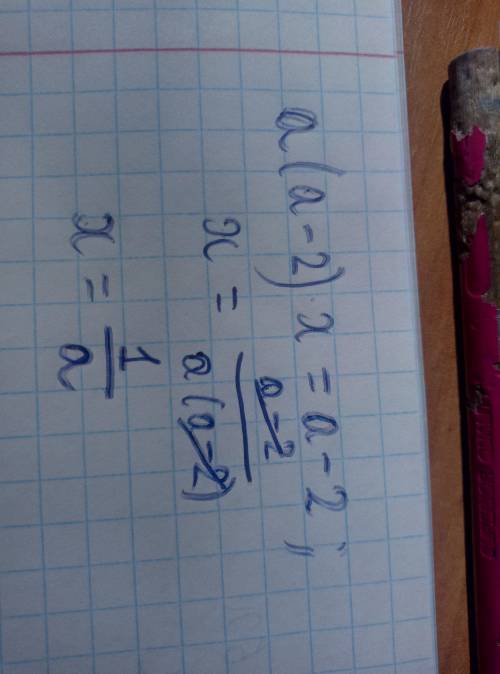 a(a-2)·x=a-2;
x = a-2 / a(a-2)
x = 1 / a